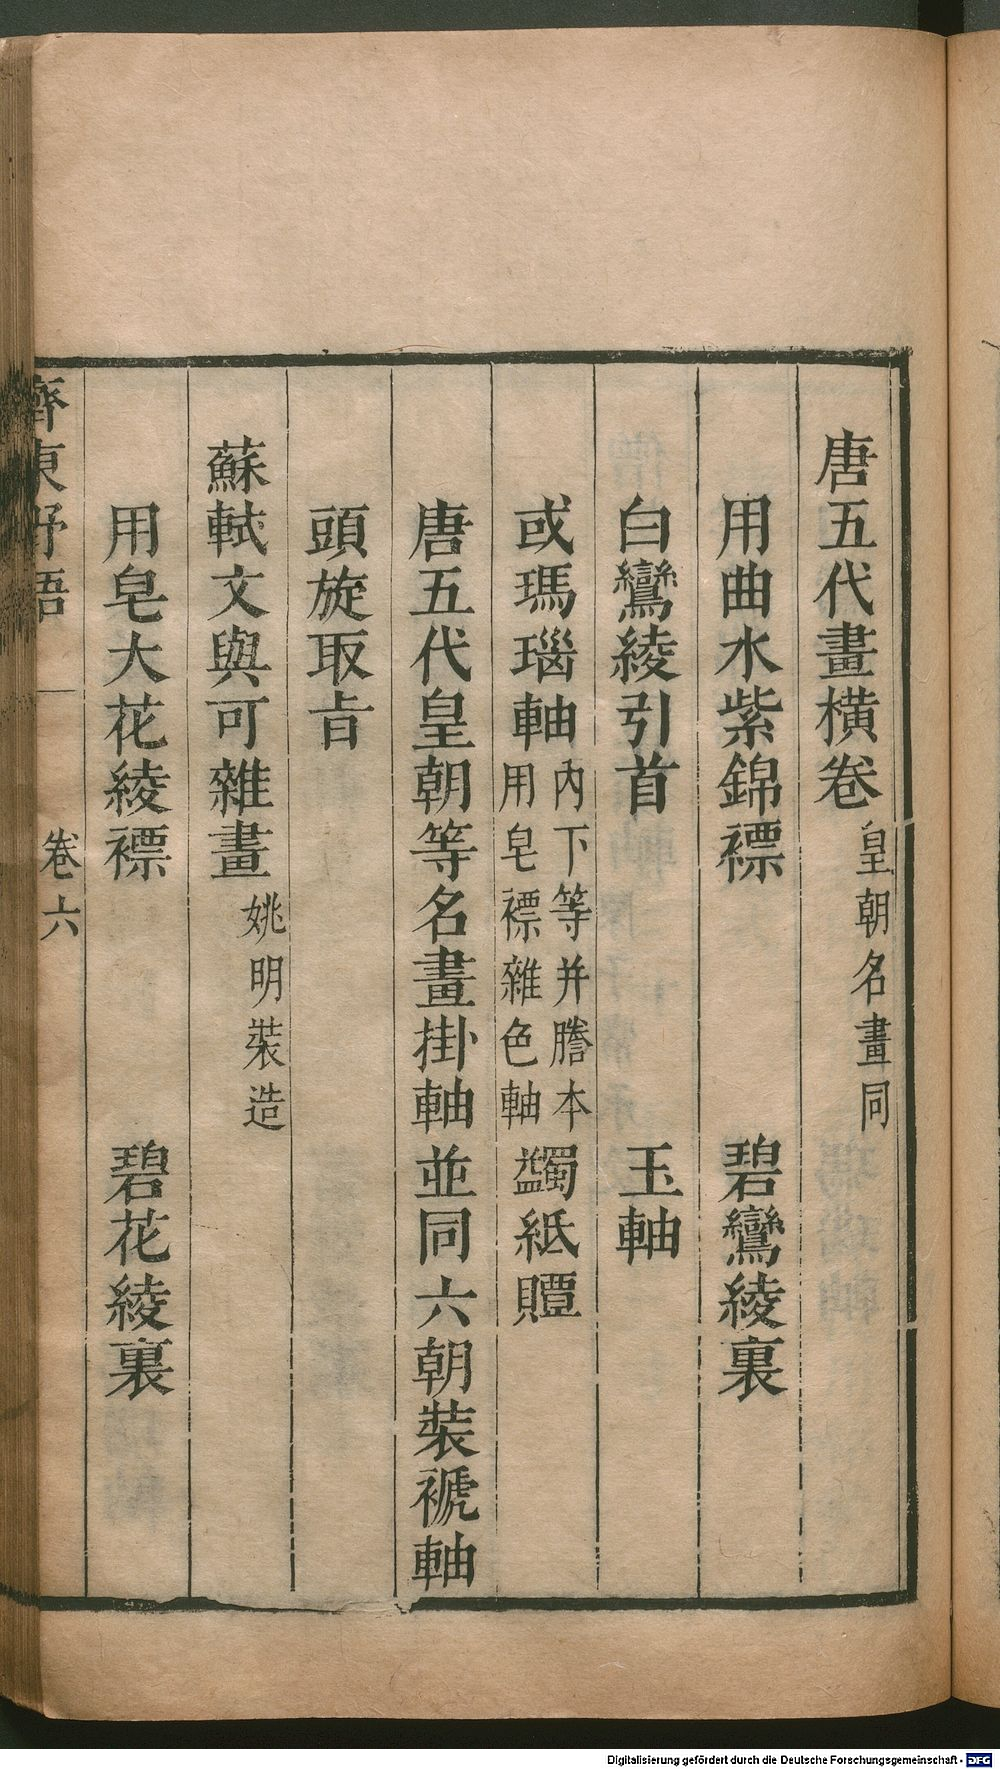 唐五代畫橫卷皇朝名畫同
用曲水紫錦褾　碧鸞綾裏
白鸞綾引首　玉軸
或瑪瑙軸內下等并謄本用皂褾雜色軸　蠲紙贉
唐五代皇朝等名畫掛軸並同六朝裝褫軸
頭旋取旨
蘇軾文與可雜畫姚明裝造
用皂大花綾褾　碧花綾裏
齊東野語　卷六
Digitalisierung gefördert durch die Deutsche Forschungsgemeinschaft - DFG